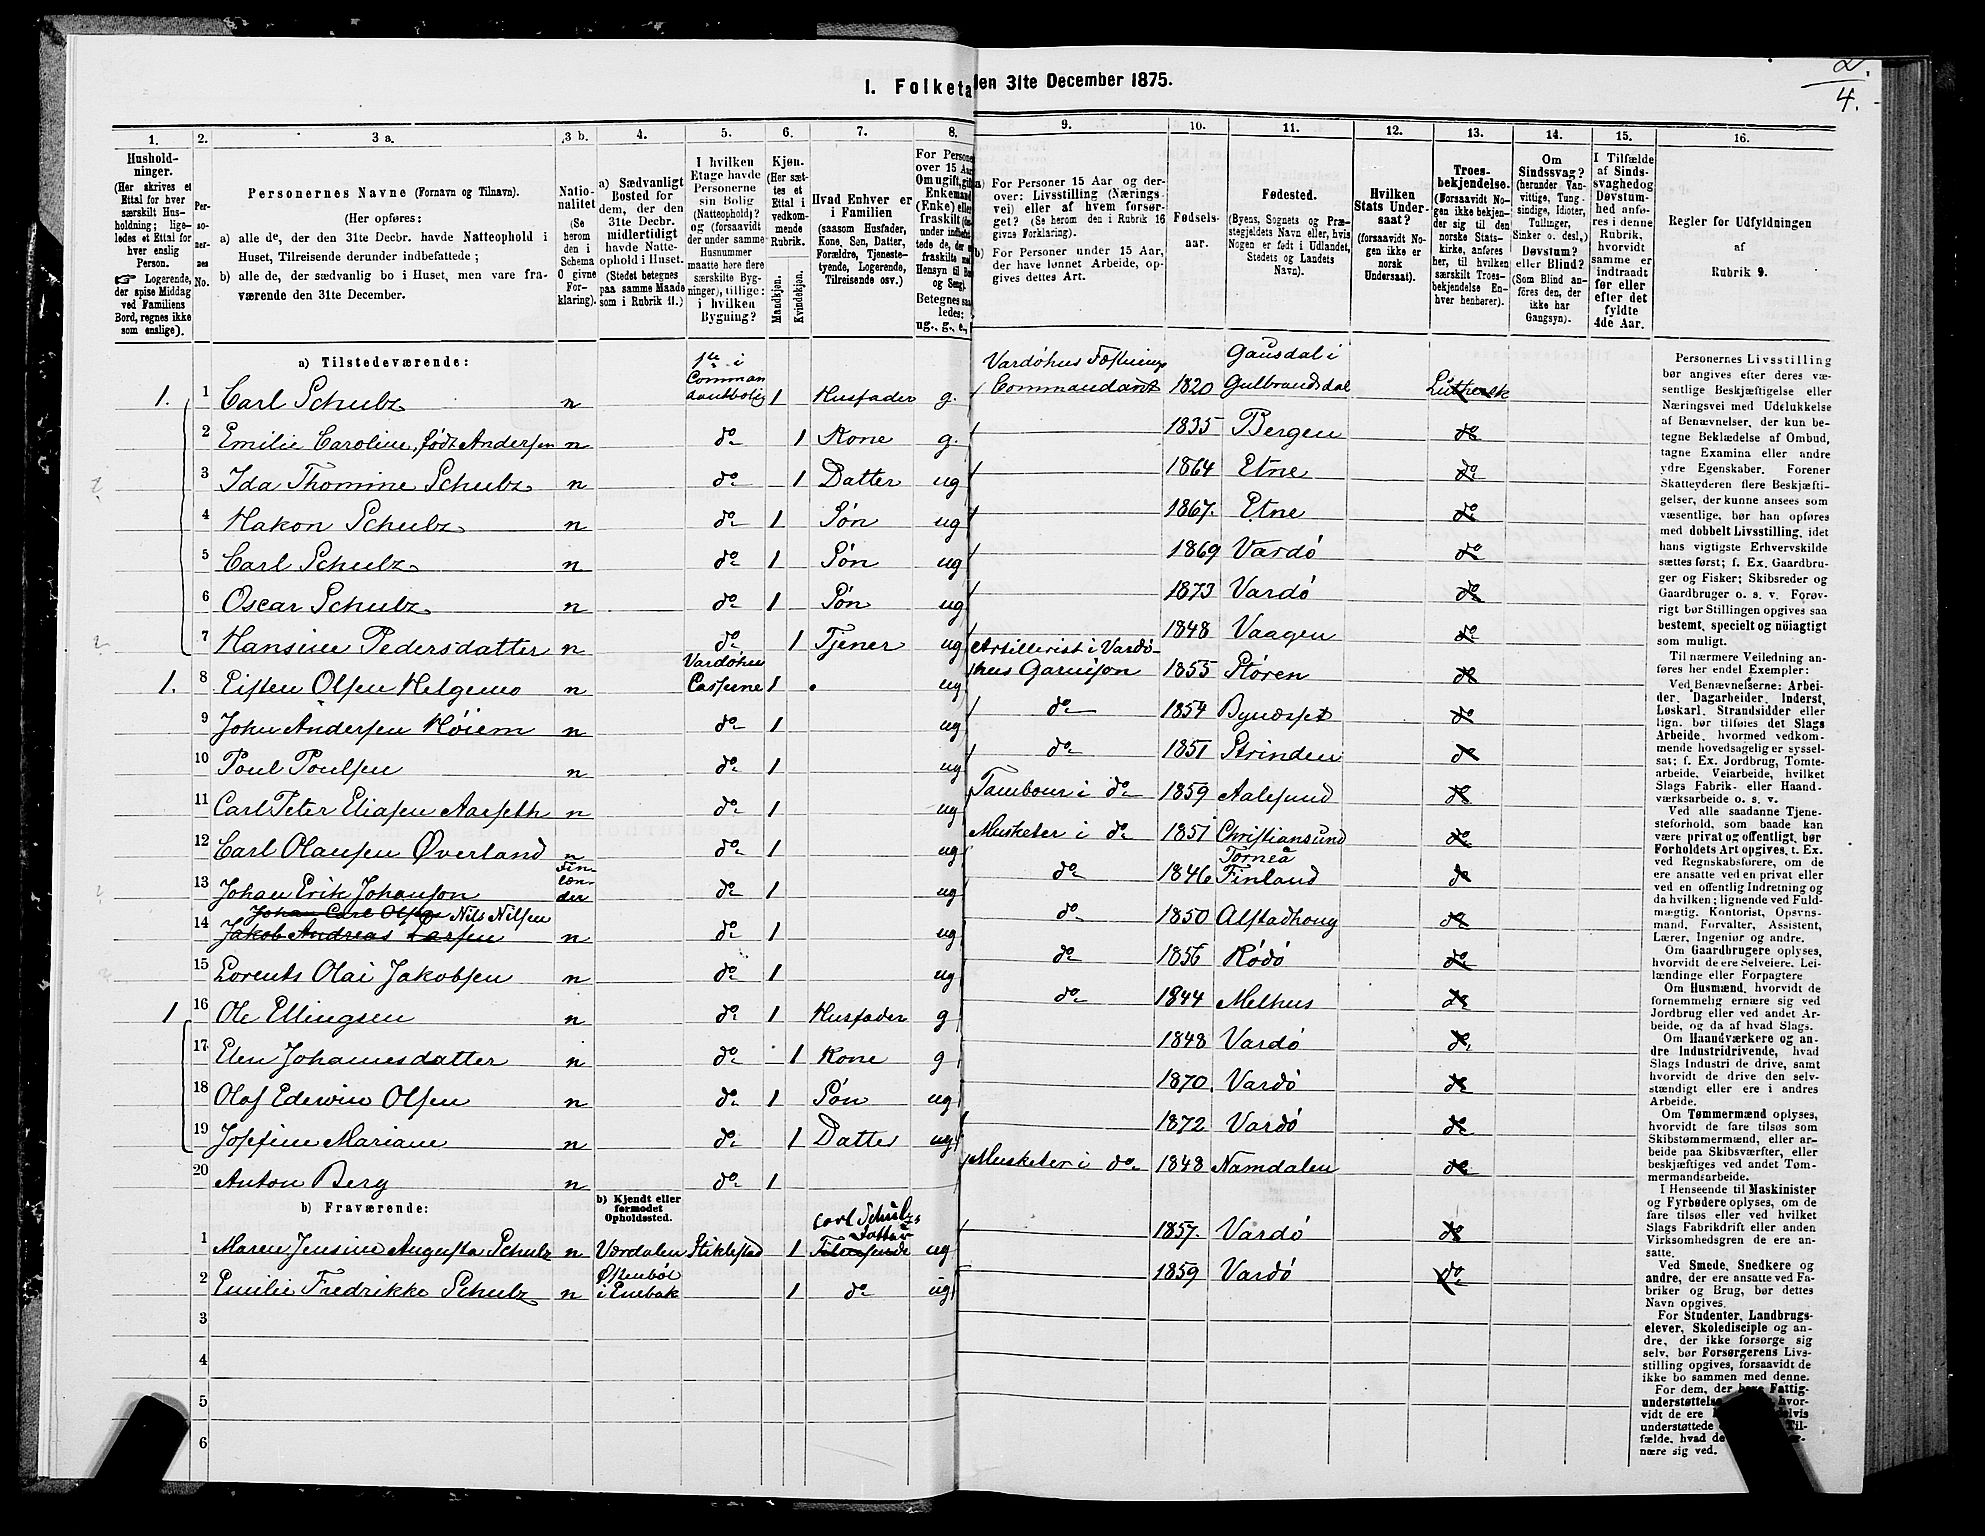 2.
4.
I. Folketa len 31te December 1875.
1. 2. 3 a. 3 b. 4. 5. 6. 7. 8. 9. 10. 11. 12. 13. 14. 15. 16.
Hushold-
ninger.
(Her skrives et
Ettal for hver
særskilt Hus-
holdning; lige-
ledes et Ettal for
hver enslig
Person.
☞ Logerende,
der spise Middag
ved Familiens
Bord, regnes ikke
som enslige).
Per-
so-
ner-
nes
No.
Personernes Navne (Fornavn og Tilnavn).
(Her opføres:
a) alle de, der den 31te Decbr. havde Natteophold i
Huset, Tilreisende derunder indbefattede;
b) alle de, der sædvanlig bo i Huset, men vare fra-
værende den 31te December.
Natio-
nalitet
(Se
herom
den i
Schema
0 givne
For-
klaring).
a) Sædvanligt
Bosted for
dem, der den
31te Decbr.
midlertidigt
havde Natte-
ophold i Huset.
(Stedet betegnes
paa samme Maade
som i Rubrik 11.)
I hvilken
Etage havde
Personerne
sin Bolig
(Natteophold)?
og (forsaavidt
der under samme
Husnummer
maatte høre flere
særskilte Byg-
ninger), tillige:
i hvilken
Bygning?
Kjøn.
(Her sæt-
tes et
Ettal i
vedkom-
mende
Rubrik.
Mandkjøn.
Kvindekjøn.
Hvad Enhver er
i Familien
(saasom Husfader,
Kone, Søn, Datter,
Forældre, Tjeneste-
tyende, Logerende,
Tilreisende osv.)
For Persone
over 15 Aar
Om ugift, gift
Enkemand
(Enke) eller
fraskilt
Betegnes saa
ledes:
ug., g., e.,
a) For Personer 15 Aar og der-
over: Livsstilling (Nærings-
vei) eller af hvem forsør-
get? (Se herom den i Rubrik 16
givne Forklaring).
b) For Personer under 15 Aar,
der have lønnet Arbeide, op-
gives dettes Art.
Fødsels-
aar.
Fødested.
(Byens, Sognets og Præ-
stegjeldets Navn eller, hvis
Nogen er født i Udlandet,
Stedets og Landets
Navn).
Hvilken
Stats Under-
saat?
(forsaavidt No-
gen ikke er
norsk
Undersaat).
Troes-
bekjendelse.
(Forsaavidt No-
gen ikke bekjen-
der sig til den
norske Stats-
kirke, anføres
her, til hvilken
særskilt Troes-
bekjendelse En-
hver henhører).
Om
Sindssvag?
(herunder Van-
vittige, Tung-
sindige, Idioter,
Tullinger,
Sinker o. desl.,)
Døvstum?
eller Blind?
(Som Blind an-
føres den, der
ikke har
Gangsyn).
I Tilfælde
af Sinds-
svaghed og
Døvstum-
hed anfø-
res i denne
Rubrik,
hvorvidt
samme er
indtraadt
før eller
efter det
fyldte
4de Aar.
Regler for Udfyldningen
af
Rubrik 9.
a) Tilstedeværende:
1. 1 Carl Schulz n 1ste i Commandantbolig 1 Husfader g. Vardøhus Fæstnings Commandant 1820 Gausdal i Gulbrandsdal Luthersk
2 Emilie Caroline, født Andersen n do 1 Kone g. 1835 Bergen do
3 Ida Thomine Schulz n do 1 Datter ug 1864 Etne do
4 Hakon Schulz n do 1 Søn ug 1867. Etne do
5 Carl Schulz n do 1 Søn ug 1869 Vardø do
6 Oscar Schulz n do 1 Søn ug 1873 Vardø do
7 Hansine Pedersdatter n do 1 Tjener ug 1848 Vaagen do
1. 8 Eisten Olsen Helgemo n Vardøhus Caserne 1 ug Artillerist i Vardøhus Garnison 1855 Støren do
9 John Andersen Høiem n do 1 ug do 1854 Bynæsset do
10 Poul Poulsen n do 1 ug do 1851 Strinden do
11 Carl Peter Eliasen Aarseth n do 1 ug Tambour i do 1859 Aalesund do
12 Carl Olausen Øverland n do 1 ug Musketer i do 1851 Christiansund do
13 Johan Erik Johanson Finlænder do 1 ug do 1846 Torneå Finland do
Johan Carl Olsen Nils Nilsen
14 Jakob Andreas Larsen n do 1 ug do 1850 Alstadhoug do
15 Lorents Olai Jakobsen n do 1 ug do 1856 Rødø do
1 16 Ole Ellingsen n do 1 Husfader g do 1844 Melhus do
17 Elen Johannesdatter n do 1 Kone g 1848 Vardø do
18 Olaf Edewin Olsen n do 1 Søn ug 1870. Vardø do
19 Josefine Mariane n do 1 Datter ug 1872 Vardø do
20 Anton Berg n do 1 Musketer i do 1848 Namdalen do
b) Fraværende:
b) Kjendt eller
formodet
Opholdssted.
1 Maren Jensine Augusta Schulz n Værdalen Stiklestad 1 Carl Schulzs Datter ug 1857. Vardø do
2 Emilie Fredrikke Schulz n Østenbøl i Enebak 1 do ug 1859 Vardø do
3
4
5
6
Personernes Livsstilling
bør angives efter deres væ-
sentlige Beskjæftigelse eller
Næringsvei med Udelukkelse
af Benævnelser, der kun be-
tegne Beklædelse af Ombud,
tagne Examina eller andre
ydre Egenskaber. Forener
Skatteyderen flere Beskjæfti-
gelser, der kunne ansees som
væsentlige, bør han opføres
med dobbelt Livsstilling, idet
hans vigtigste Erhvervskilde
sættes først; f. Ex. Gaardbru-
ger og Fisker; Skibsreder og
Gaardbruger o. s. v. Forøv-
rigt bør Stillingen opgives saa
bestemt, specielt og nöiagtigt
som muligt.
Til nærmere Veiledning an-
føres her endel Exempler:
Ved Benævnelserne: Arbei-
der, Dagarbeider, Inderst,
Løskarl, Strandsidder eller
lign. bør tilføies det Slags
Arbeide, hvormed vedkom-
mende hovedsagelig er syssel-
sat; f. Ex. Jordbrug, Tomte-
arbeide, Veiarbeide, hvilket
Slags Fabrik- eller Haand-
værksarbeide o. s. v.
Ved alle saadanne Tjene-
steforhold, som baade kan
være privat og offentligt, bør
Forholdets Art opgives, t. Ex.
ved Regnskabsførere, om de
ere ansatte ved en privat eller
ved en offentlig Indretning og
da hvilken; lignende ved Fuld-
mægtig, Kontorist, Opsyns-
mand, Forvalter, Assistent,
Lærer, Ingeniør og andre.
Om Gaardbrugere oplyses,
hvorvidt de ere Selveiere, Lei-
lændinge eller Forpagtere
Om Husmænd, hvorvidt de
fornemmelig ernære sig ved
Jordbrug eller ved andet Ar-
beide, og da af hvad Slags.
Om Haandværkere og an-
dre Industridrivende, hvad
Slags Industri de drive, samt
hvorvidt de drive den selv-
stændigt eller ere i andres
Arbeide.
Om Tømmermænd oplyses,
hvorvidt de fare tilsøs som
Skibstømmermænd, eller ar-
beide paa Skibsværfter, eller
beskjæftiges ved andet Tøm-
mermandsarbeide.
I Henseende til Maskinister
og Fyrbødere oplyses, om de
fare tilsøs eller ved hvilket
Slags Fabrikdrift eller anden
Virksomhedsgren de ere an-
satte.
Ved Smede, Snedkere og
andre, der ere ansatte ved Fa-
briker og Brug, bør dettes
Navn opgives.
For Studenter, Landbrugs-
elever, Skoledisciple og an-
dre, der ikke forsørge sig
selv, bør Forsørgerens Livs-
stilling opgives, forsaavidt de
ikke bo sammen med denne.
For dem, der have Fattig-
understøttelse hvor-
vidt de ere
understøttede
fælde, hvad de
nære sig ved.